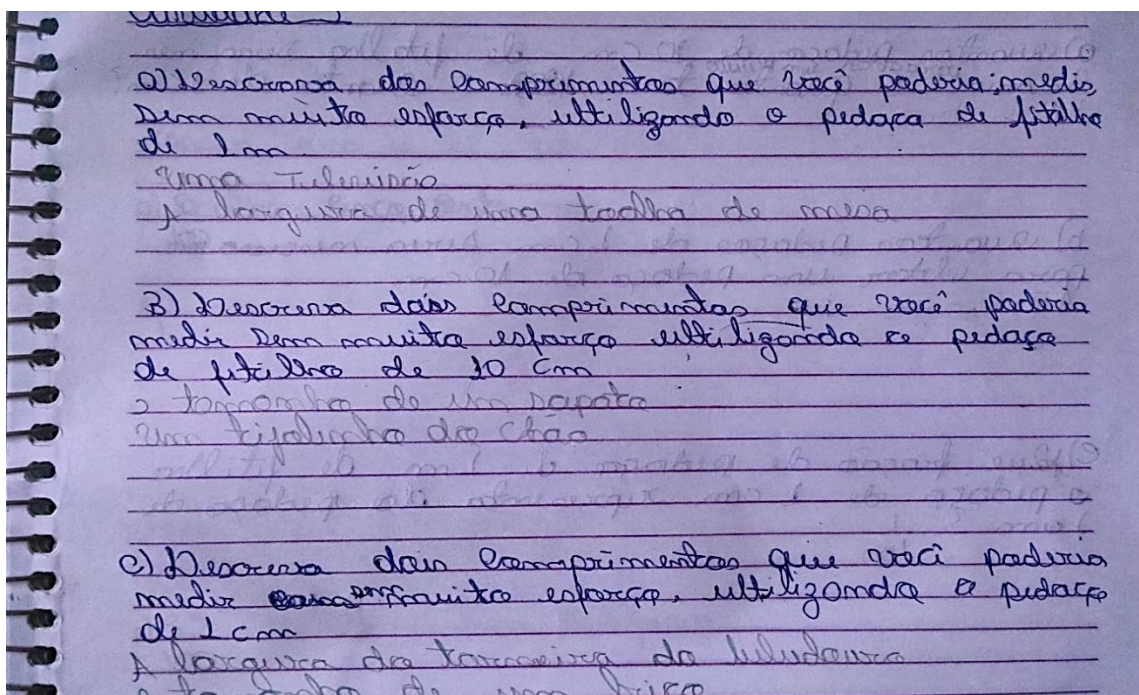 Atividade
a) Descreva dois comprimentos que você poderia medir,
sem muito esforço, ultilizando o pedaço de fitilho
de 1 m
Uma Televisão
A largura de uma toalha de mesa
B) Descreva dois comprimentos que você poderia
medir sem muito esforço ultiligando o pedaço
de fitilho de 10 cm
O tamanho de um sapato
Um tijolinho do chão
C) Descreva dois comprimentos que você poderia
medir sem muito esforço, ultilizando o pedaço
de 1 cm
A largura da torneira do bebedouro
O tamanho de um